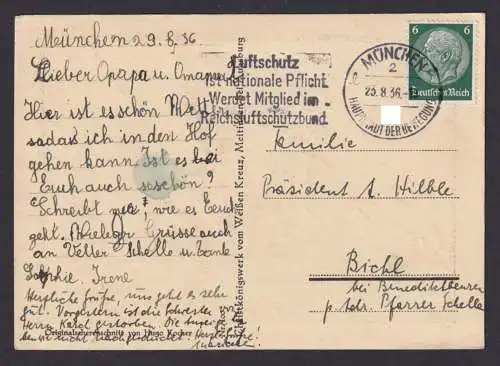 München 29.8.36
Lieber Opapa u. Omama!
Hier ist es schön Wetter
sodas ich in den Hof
gehen kann Ist es bei
Euch auch so schön?
Schreibt mir, wie es Euch
geht. Viele Grüsse auch
an Vetter Schelle u. Tante
Sophie. Irene
Herzliche Grüße, uns geht es sehr
gut. Vorgestern ist die Schwester
Herrn Karch gestorben. Die
Originalscherenschnitt von Hugo Kocher
vom Weißen Kreuz,
Luftschutz
ist nationale Pflicht
Werdet Mitglied im
Reichsluftschutzbund
MÜNCHEN
2
8.36
HAUPTSTADT DER BEWEGUNG
6 6
Deutsches Reich
Familie
Präsident A. Hilble
Bichl
bei Benediktbeuren
p. Adr. Pfarrer Schelle